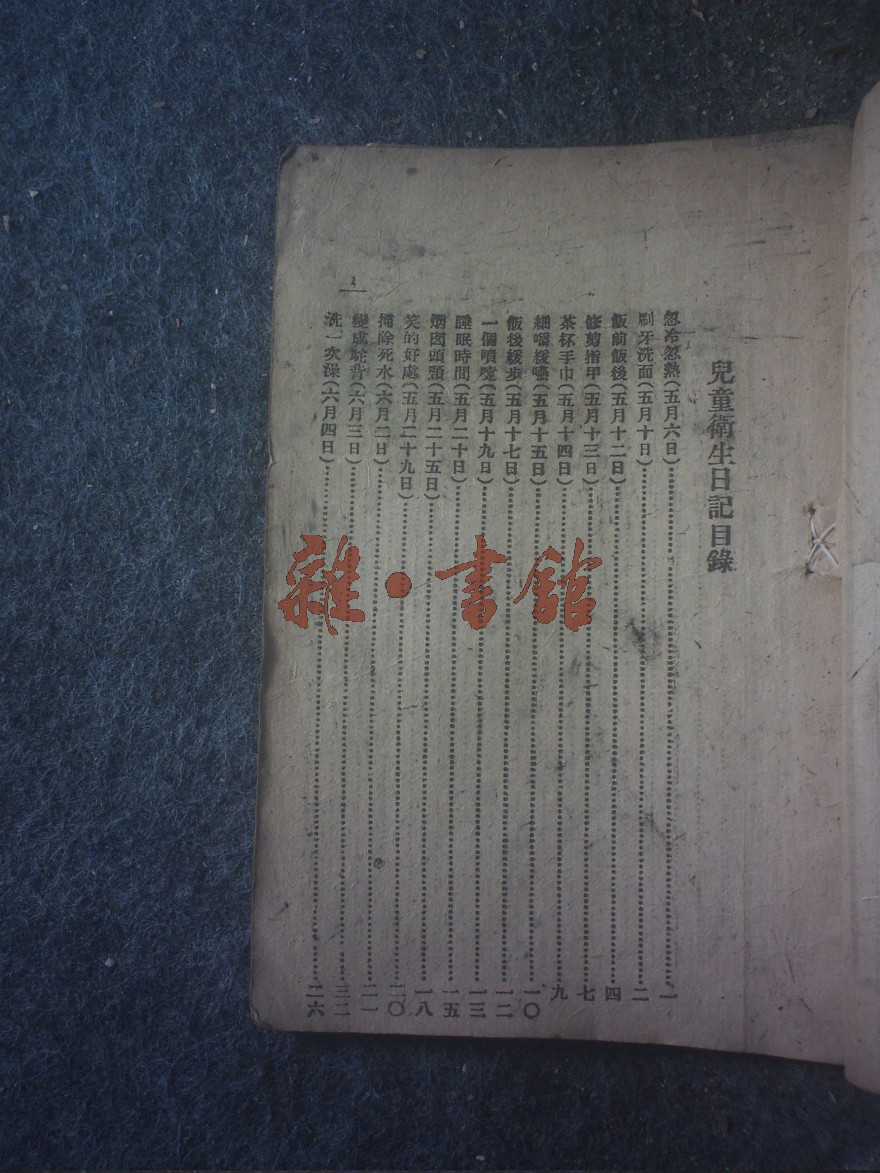 兒童衛生日記目錄
忽冷忽熱(五月六日)…………一
刷牙洗面(五月十日)…………二
飯前飯後(五月十二日)…………四
修剪指甲(五月十三日)…………七
茶杯手巾(五月十四日)…………九
細嚼緩嚥(五月十五日)…………一〇
飯後緩步(五月十七日)…………一二
一個噴嚏(五月十九日)…………一三
睡眠時間(五月二十日)…………一五
烟囪頭頸(五月二十五日)…………一八
笑的好處(五月二十九日)…………二〇
掃除死水(六月二日)…………二一
變成駝背(六月三日)…………二二
洗一次澡(六月四日)…………二六
一
雜·書館